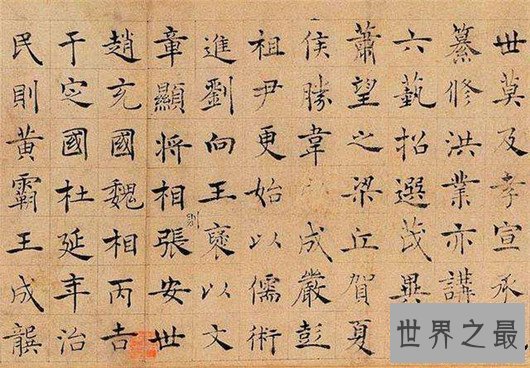 世莫及孝宣承
纂修洪業亦講
六藝招選茂異
蕭望之梁丘賀夏
侯勝韋成嚴彭
祖尹更始以儒術
進劉向王褒以文
章顯將相則張安世
趙充國魏相丙吉
于定國杜延年治
民則黃霸王成龔
世界之最